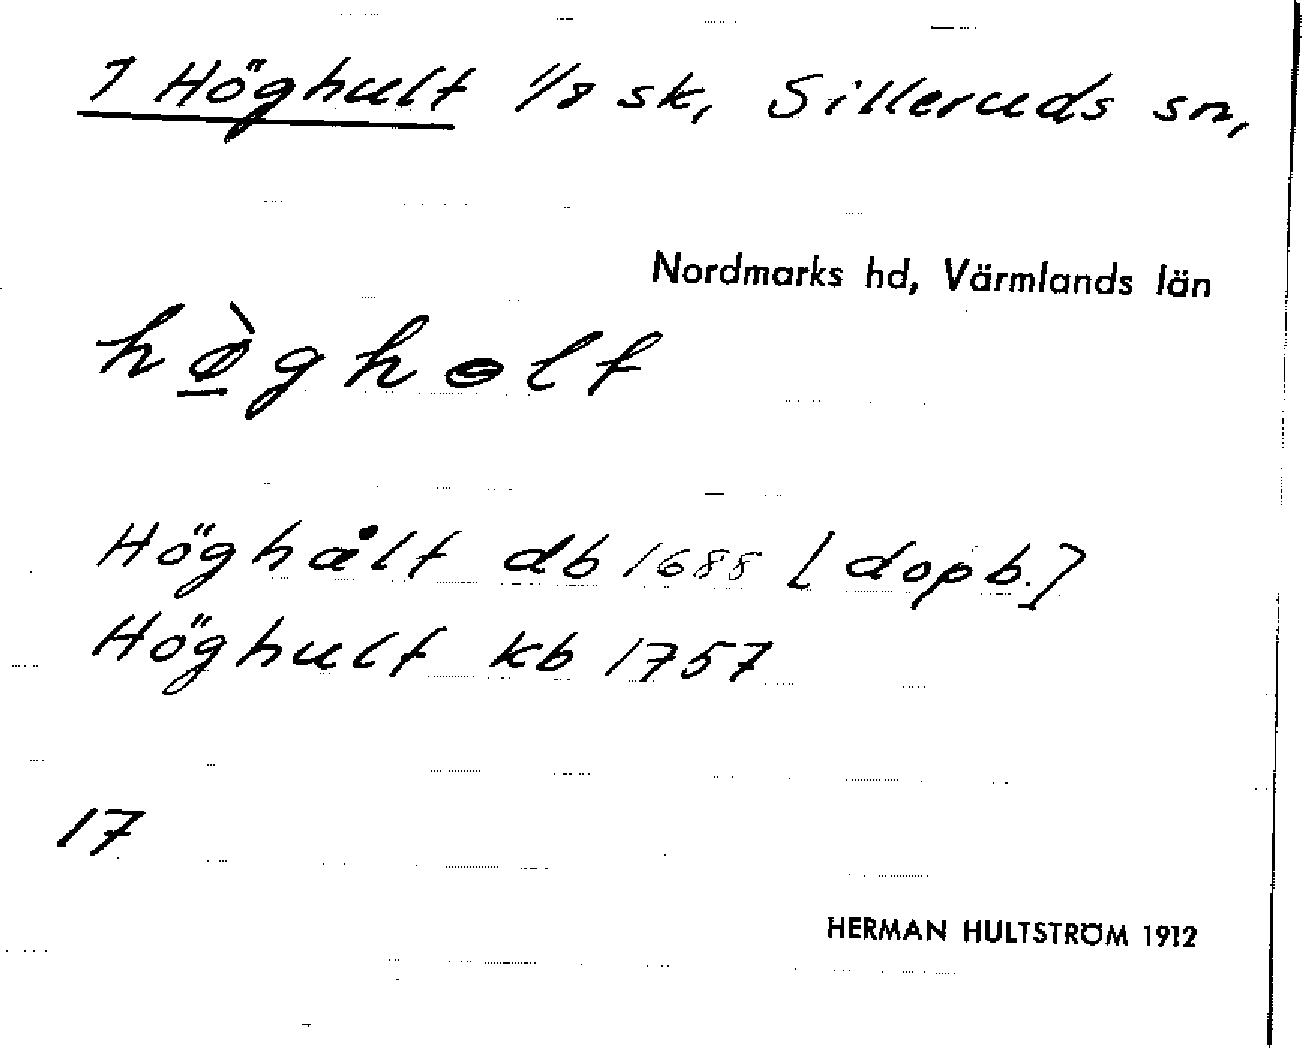 1 Höghult 1/8 sk, Silleruds sn,
Nordmarks hd, Värmlands län
hø̲̀ghɵlt
Höghålt db 1688 [dopb.]
Höghult kb 1757
17
HERMAN HULTSTRÖM 1912